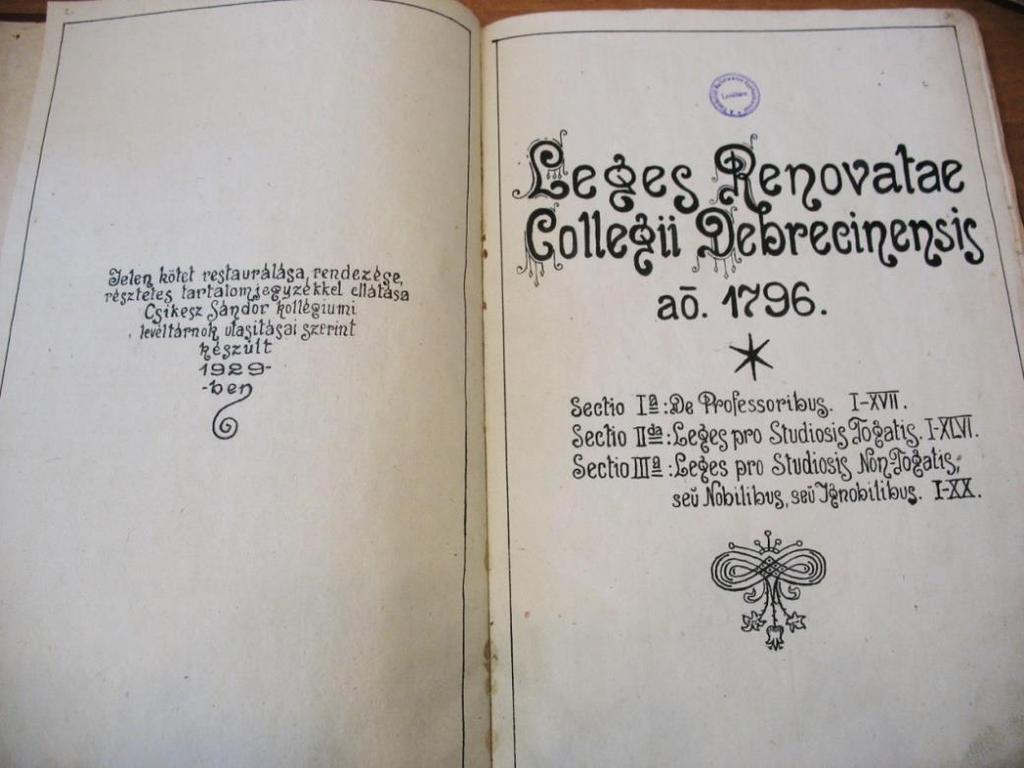 Jelen kötet restaurálása, rendezése,
részletes tartalomjegyzékkel ellátása
Csikesz Sándor kollégiumi
levéltárnok utasításai szerint
készült
1929-
-ben
Leges Renovatae
Collegii Debrecinensis
aō. 1796.
Sectio Iª: De Professoribus. I-XVII.
Sectio IIdª: Leges pro Studiosis Togatis. I-XLVI.
Sectio IIIª: Leges pro Studiosis Non-Togatis,
seū Nobilibus, seū Ignobilibus. I-XX.